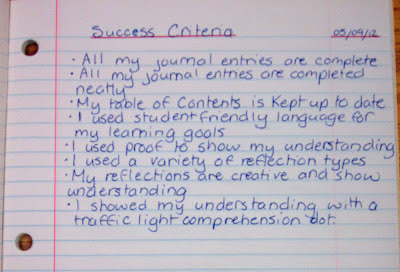 Success Criteria 05/09/12
· All my journal entries are complete
· All my journal entries are completed
neatly
· My table of Contents is Kept up to date
· I used student friendly language for
my learning goals
· I used proof to show my understanding
· I used a variety of reflection types
· My reflections are creative and show
understanding
· I showed my understanding with a
traffic light comprehension dot.